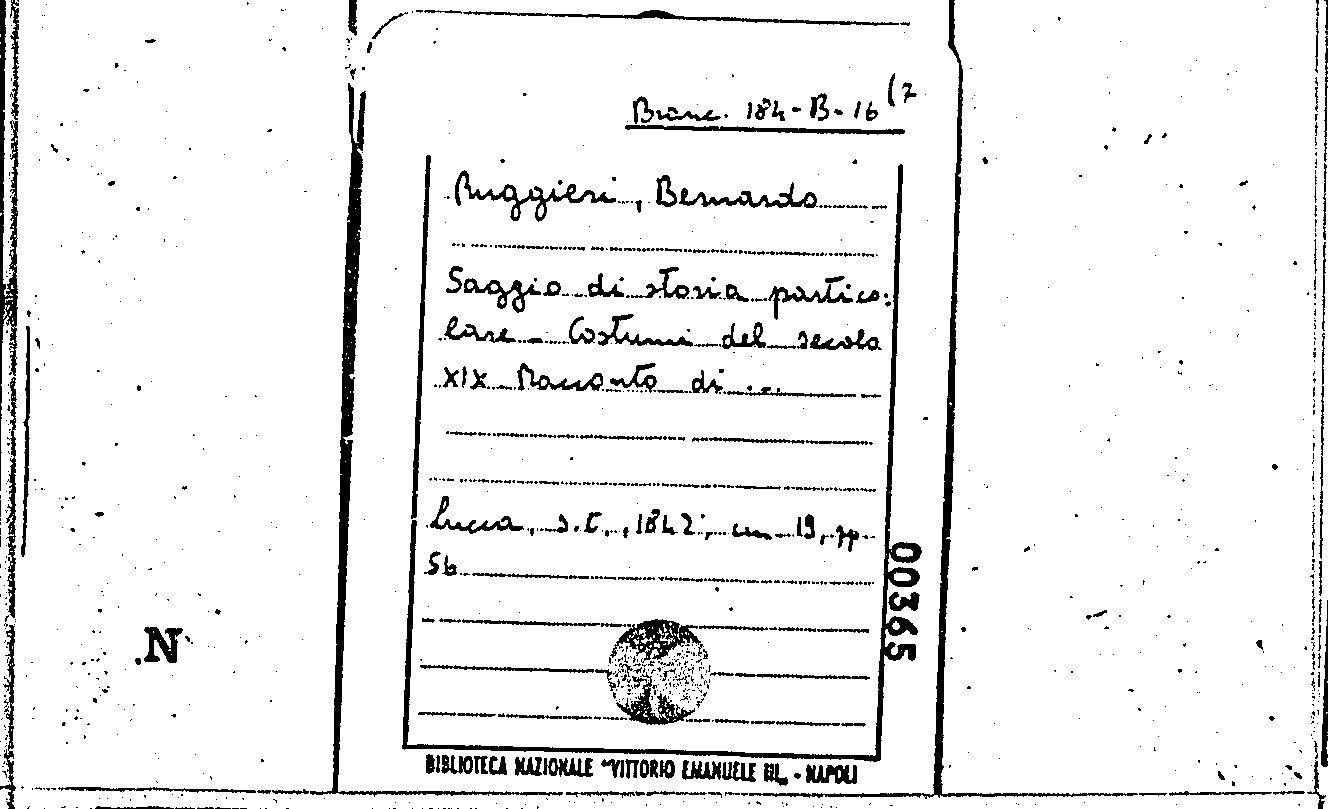 Branc. 184-B-16 (7
Ruggieri, Bernardo
Saggio di storia partico:
lare - Costumi del secolo
XIX Racconto di ...
Lucca, s.t., 1842; cm 19, pp.
56
00365
N
BIBLIOTECA NAZIONALE "VITTORIO EMANUELE III„ - NAPOLI